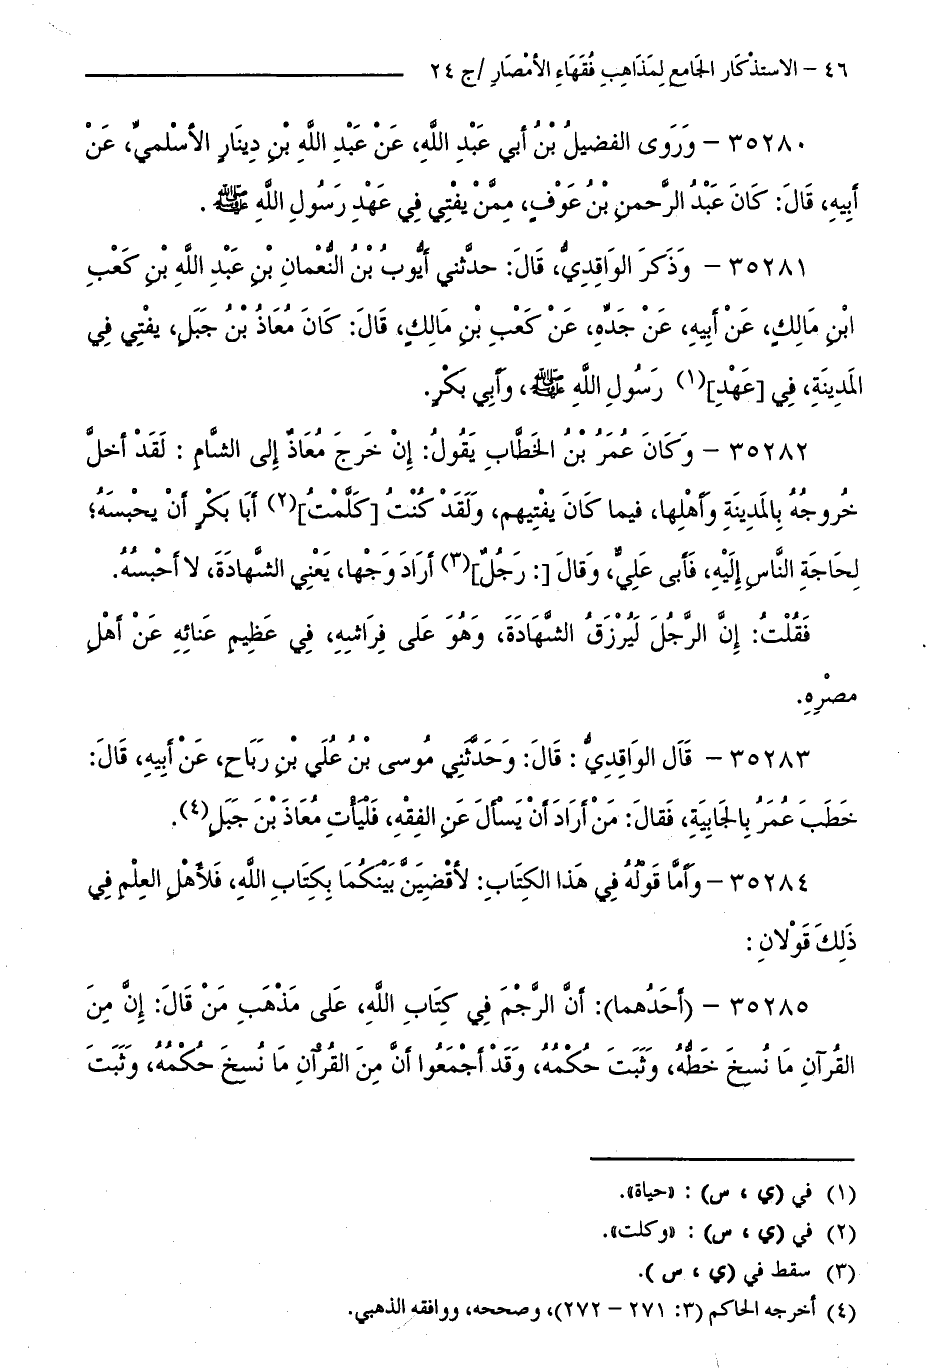 ٤٦ – الاستذْكَار الجَامع لِمَذَاهِبِ فُقَهَاءِ الأمْصَارِ /ج ٢٤
٣٥٢٨٠ – وَرَوَى الفضيلُ بْنُ أبي عَبْدِ اللَّهِ، عَنْ عَبْدِ اللَّهِ بْنِ دِينَارِ الأسْلميِّ، عَنْ
أبِيهِ، قَالَ: كَانَ عَبْدُ الرَّحمنِ بْنُ عَوْفٍ، مِمَّنْ يفْتِي فِي عَهْدِ رَسُولِ اللَّهِ ﷺ .
٣٥٢٨١ – وَذَكرَ الوَاقِدِيُّ، قَالَ: حدثَّني أيُّوبُ بْنُ النُّعْمانِ بْنِ عَبْدِ اللَّهِ بْنِ كَعْبِ
ابْنِ مَالِكٍ، عَنْ أبِيهِ، عَنْ جَدِّهِ، عَنْ كَعْبِ بْنِ مَالِكٍ، قَالَ: كَانَ مُعَاذُ بْنُ جَبَلٍ، يفْتِي فِي
المَدِينَةِ، فِي [عَهْدِ](١) رَسُولِ اللَّهِ ﷺ، وَأبِي بَكْرٍ.
٣٥٢٨٢ – وَكَانَ عُمَرُ بْنُ الخَطَّابِ يَقُولُ: إنْ خَرجَ مُعَاذٌ إلى الشَّامِ : لَقَدْ أخلَّ
خُروجُهُ بِالمَدِينَةِ وَأهْلِها، فيما كَانَ يفْتِيهم، وَلَقَدْ كُنْتُ [كَلَّمْتُ](٢) أبَا بَكْرٍ أنْ يحْبِسَهُ؛
لِحَاجَةِ النَّاسِ إلَيْهِ، فَأبى عَلِيٌّ، وقَالَ [: رَجُلٌ](٣) أرَادَ وَجْها، يَعْنِي الشَّهادَةَ، لا أحْبِسُهُ.
فَقُلْتُ: إنَّ الرَّجُلَ لَيُرْزَقُ الشَّهَادَةَ، وَهُوَ عَلى فِرَاشِهِ، فِي عَظِيمِ عَنائِهِ عَنْ أهْلِ
مصْرِهِ.
٣٥٢٨٣ – قَالَ الوَاقِدِيُّ : قَالَ: وَحَدَّثَنِي مُوسى بْنُ عُلَي بْنِ رَبَاحٍ، عَنْ أبِيهِ، قَالَ:
خَطَبَ عُمَرُ بِالجَابِيَةِ، فَقالَ: مَنْ أرَادَ أنْ يَسْألَ عَنِ الفِقْهِ، فَلْيَأْتِ مُعَاذَ بْنَ جَبَلٍ(٤).
٣٥٢٨٤ – وَأمَّا قَوْلُهُ فِي هَذَا الكِتَابِ: لأقْضِيَنَّ بَيْنَكُمَا بِكِتَابِ اللَّهِ، فَلأَهْلِ العِلْمِ فِي
ذَلِكَ قَوْلانِ :
٣٥٢٨٥ – (أحَدُهما): أنَّ الرَّجْمَ فِي كِتَابِ اللَّهِ، عَلى مَذْهَبِ مَنْ قَالَ: إنَّ مِنَ
القُرآنِ مَا نُسِخَ خَطُّهُ، وَثَبَتَ حكْمُهُ، وَقَدْ أجْمَعُوا أنَّ مِنَ القُرآنِ مَا نُسِخَ حُكْمُهُ، وَثَبَتَ
(١) في (ي ، س) : «حياة».
(٢) في (ي ، س) : «وكلت».
(٣) سقط في (ي ، س ).
(٤) أخرجه الحاكم (٣: ٢٧١ – ٢٧٢)، وصححه، ووافقه الذهبي.